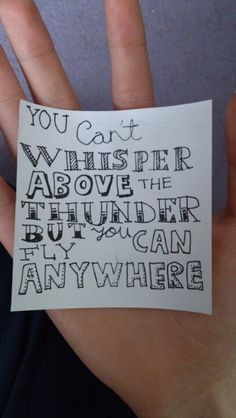 YOU Can't
WHISPER
ABOVE THE
THUNDER
BUT you CAN
FLY
ANYWHERE